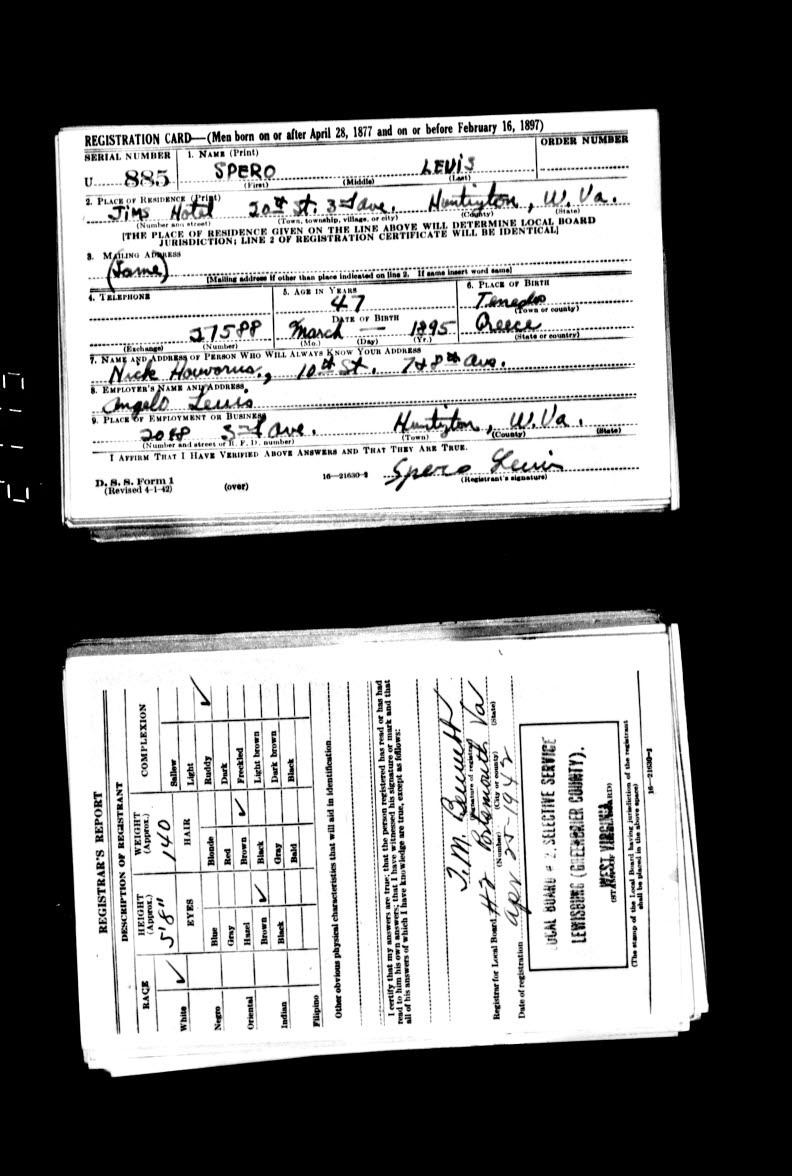 REGISTRATION CARD—(Men born on or after April 28, 1877 and on or before February 16, 1897)
SERIAL NUMBER 1. NAME (Print) ORDER NUMBER
U 885 SPERO LEWIS
(First) (Middle) (Last)
2. PLACE OF RESIDENCE (Print)
Jims Hotel 20th St. 3rd ave. Huntington, W. Va.
(Number and street) (Town, township, village, or city) (County) (State)
[THE PLACE OF RESIDENCE GIVEN ON THE LINE ABOVE WILL DETERMINE LOCAL BOARD
JURISDICTION; LINE 2 OF REGISTRATION CERTIFICATE WILL BE IDENTICAL]
3. MAILING ADDRESS
(Same)
[Mailing address if other than place indicated on line 2. If same insert word same]
4. TELEPHONE 5. AGE IN YEARS 6. PLACE OF BIRTH
47 Tenedos
DATE OF BIRTH (Town or county)
27588 March — 1895 Greece
(Exchange) (Number) (Mo.) (Day) (Yr.) (State or country)
7. NAME AND ADDRESS OF PERSON WHO WILL ALWAYS KNOW YOUR ADDRESS
Nick 10th St. 7+8th ave.
8. EMPLOYER'S NAME AND ADDRESS
Angelo Lewis
9. PLACE OF EMPLOYMENT OR BUSINESS
2088 3rd ave. Huntington, W. Va.
(Number and street or R. F. D. number) (Town) (County) (State)
I AFFIRM THAT I HAVE VERIFIED ABOVE ANSWERS AND THAT THEY ARE TRUE.
Spero Lewis
D. S. S. Form 1 (over) 16—21630-2 (Registrant's signature)
(Revised 4-1-42)
REGISTRAR'S REPORT
DESCRIPTION OF REGISTRANT
RACE HEIGHT (Approx.) WEIGHT (Approx.) COMPLEXION
5'8" 140
White ✓ EYES HAIR Sallow
Light
Negro Blue Blonde Ruddy ✓
Gray Red Dark
Oriental Hazel Brown ✓ Freckled
Brown ✓ Black Light brown
Indian Black Gray Dark brown
Bald Black
Filipino
Other obvious physical characteristics that will aid in identification
I certify that my answers are true; that the person registered has read or has had
read to him his own answers; that I have witnessed his signature or mark and that
all of his answers of which I have knowledge are true, except as follows:
T. M. Bennett
(Signature of registrar)
Registrar for Local Board #2 Portsmouth Va
(Number) (City or county) (State)
Date of registration Apr 25-1942
LOCAL BOARD # 2. SELECTIVE SERVICE
LEWISBURG (GREENBRIER COUNTY),
WEST VIRGINIA
(The stamp of the Local Board having jurisdiction of the registrant
shall be placed in the above space)
16—21630-1